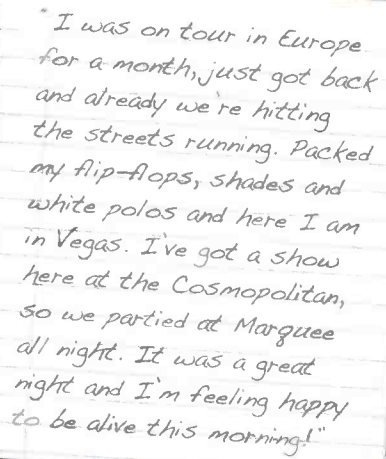 "I was on tour in Europe
for a month, just got back
and already we're hitting
the streets running. Packed
my flip-flops, shades and
white polos and here I am
in Vegas. I've got a show
here at the Cosmopolitan,
so we partied at Marquee
all night. It was a great
night and I'm feeling happy
to be alive this morning!"